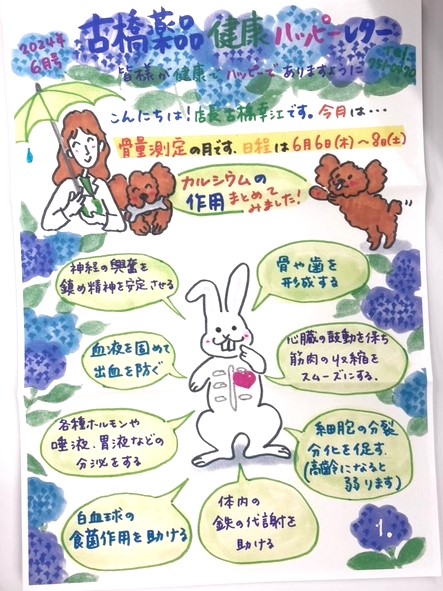 2024年
6月号
古橋薬品 健康 ハッピーレター
皆様が健康で ハッピーで ありますように
こんにちは!店長古橋幸江です。今月は…
骨量測定の月です。日程は6月6日(木)〜8日(土)
カルシウムの
作用まとめて
みました!
神経の興奮を
鎮め精神を安定させる
骨や歯を
形成する
血液を固めて
出血を防ぐ
心臓の鼓動を保ち
筋肉の収縮を
スムーズにする.
各種ホルモンや
唾液.胃液などの
分泌をする
細胞の分裂
分化を促す.
(高齢になると
弱ります)
白血球の
食菌作用を助ける
体内の
鉄の代謝を
助ける
1.